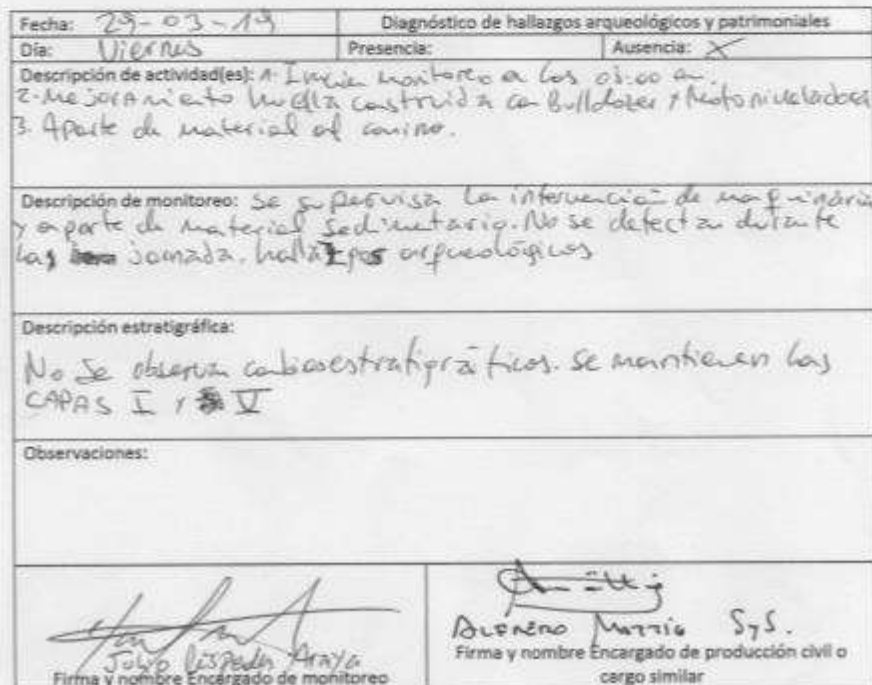 Fecha: 29-03-19 Diagnóstico de hallazgos arqueológicos y patrimoniales
Día: Viernes Presencia: Ausencia: X
Descripción de actividad(es): 1. Inicia monitoreo a las 08:00 am.
2. Mejoramiento huella construida con Bulldozer y Motoniveladora
3. Aporte de material al camino.
Descripción de monitoreo: Se supervisa la intervención de maquinaria
y aporte de material sedimentario. No se detectan durante
las jornada. hallazgos arqueológicos
Descripción estratigráfica:
No se observan cambios estratigráficos. Se mantienen las
CAPAS I y V
Observaciones:
Araya
Firma y nombre Encargado de monitoreo
ALFREDO SyS.
Firma y nombre Encargado de producción civil o
cargo similar